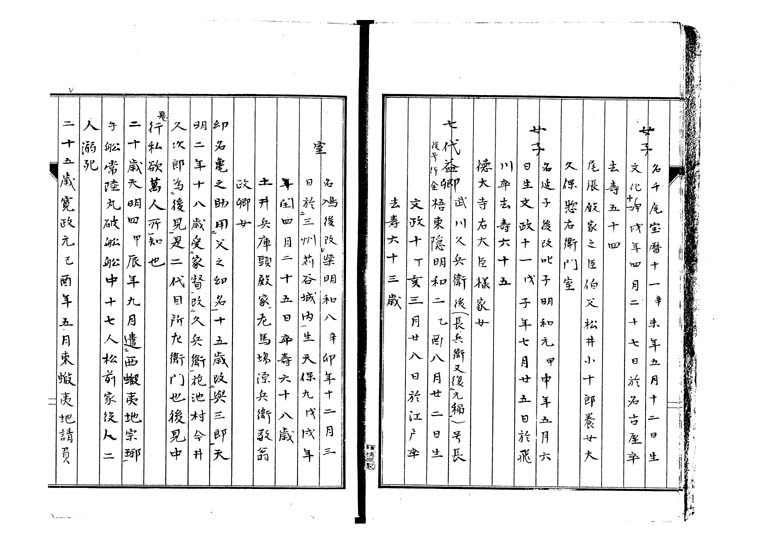 女子 名千尾宝暦十一辛未年五月十二日生
文化十甲戌年四月二十七日於名古屋卒
去寿五十四
尾張殿家之臣伯父松井小十郎養女大
久保惣右衛門室
女子 名延子後改此子明和元甲申年五月六
日生文政十一戊子年七月廿五日於飛
川卒去寿六十五
徳大寺右大臣様家女
七代益卿 武川久兵衛後(長兵衛又復九稲)号長
梧東隠明和二乙酉八月廿二日生
文政十丁亥三月廿八日於江戸卒
去寿六十三歳
室 名鳰後改栄明和八辛卯年十二月三
日於三州苅谷城内生天保九戊戌年
閏四月二十五日卒寿六十八歳
土井兵庫頭殿家老馬場源兵衛敬翁
政卿女
幼名亀之助用父之幼名十五歳改与三郎天
明二年十八歳受家督改久兵衛苑池村今井
久次郎為後見是二代目所左衛門也後見中
行私欲万人所知也
二十歳天明四甲辰年九月遣西蝦夷地宗琊
手船常陸丸破船船中十七人松前家役人二
人溺死
二十五歳寛政元己酉年五月東蝦夷地請負